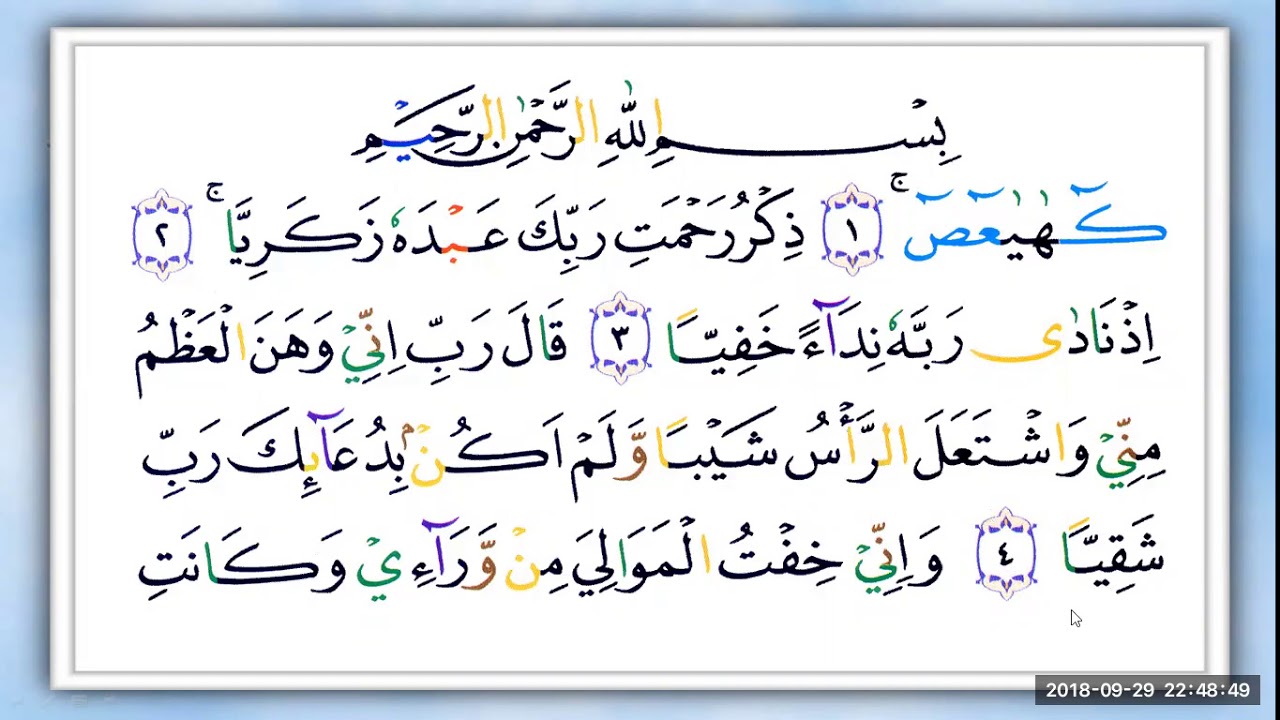 بِسْمِ اللّٰهِ الرَّحْمٰنِ الرَّحِيْمِ
كٓهٰيٰعٓصٓ ۚ ١ ذِكْرُ رَحْمَتِ رَبِّكَ عَبْدَهٗ زَكَرِيَّا ۚ ٢
اِذْ نَادٰى رَبَّهٗ نِدَآءً خَفِيًّا ٣ قَالَ رَبِّ اِنِّيْ وَهَنَ الْعَظْمُ
مِنِّيْ وَاشْتَعَلَ الرَّأْسُ شَيْبًا وَّلَمْ اَكُنْۢ بِدُعَآىِٕكَ رَبِّ
شَقِيًّا ٤ وَاِنِّيْ خِفْتُ الْمَوَالِيَ مِنْ وَّرَآءِيْ وَكَانَتِ
2018-09-29 22:48:49